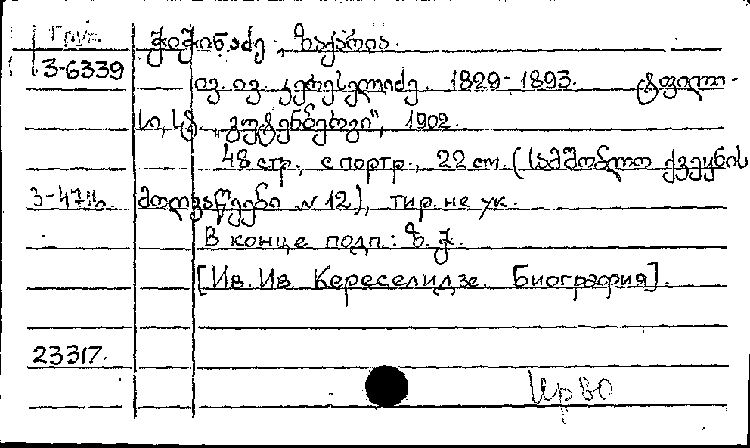 Груз.
3-6339
ჭიჭინაძე, ზაქარია.
ივ. ივ. კერესელიძე. 1829-1893. ტფილი-
სი, სტ. „გუტენბერგი", 1902.
48 стр., с портр., 22 см. (სამშობლო ქვეყნის
3-4716. მოღვაწეენი №12), тир. не ук.
В конце подп: ზ. ჭ.
[Ив. Ив. Кереселидзе. Биография].
23317.